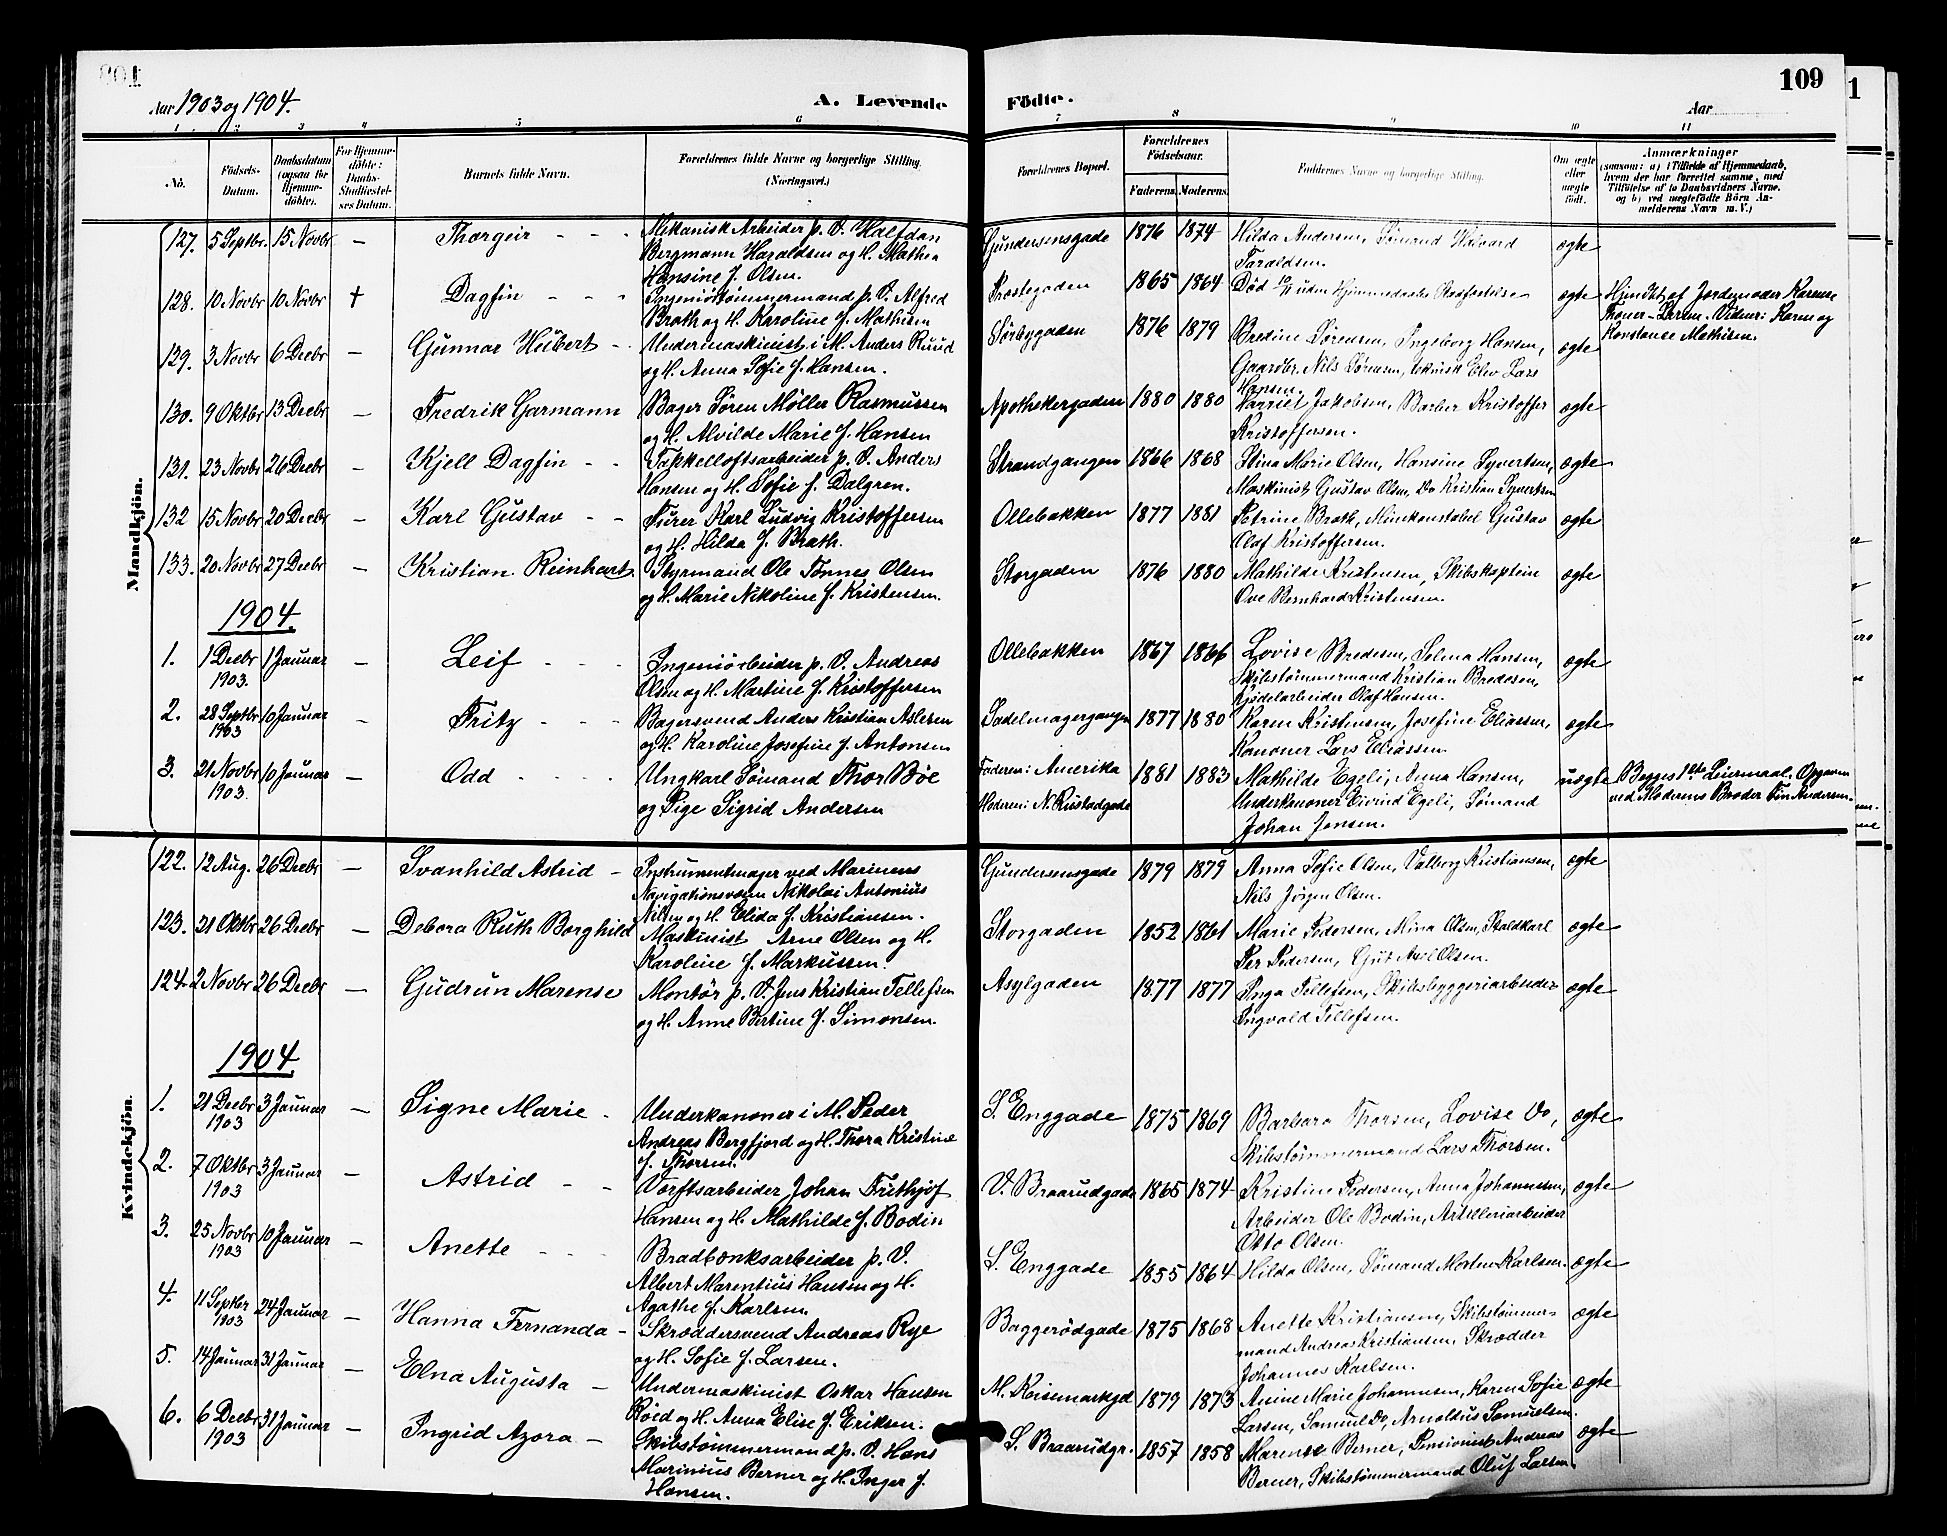 109
Aar 1903 og 1904.
A. Levende Födte.
Aar
1 2 3 4 5 6 7 8 9 10 11
No.
Födsels-Datum.
Daabsdatum (ogsaa för Hjemme-döbte).
For Hjemme-döbte: Daabs-Stadfæstel-ses Datum.
Barnets fulde Navn.
Forældrenes fulde Navne og borgerlige Stilling. (Næringsvei.)
Forældrenes Bopæl.
Forældrenes Födselsaar.
Faderens. Moderens.
Faddernes Navne og borgerlige Stilling.
Om ægte eller uægte födt.
Anmærkninger
(saasom: a) i Tilfælde af Hjemmedaab, hvem der har forrettet samme, med Tilföielse af to Daabsvidners Navne, og b) ved uægtefödte Börn An-melderens Navn m. V.)
Mandkjön.
127. 5 Septbr. 15 Novbr — Thorgeir - - - Mekanisk Arbeider p. V. Halfdan Gundersensgade 1876 1874 Hilda Andersen, Sømand Haivard ægte
Bergmann Haraldsen og H. Mathea Taraldsen.
Hansine f. Olsen.
128. 10 Novbr 10 Novbr + Dagfin - - - Ingeniörtömmermand p. V. Alfred Prestegaden 1865 1864 Død uden Hjemmedaabs Stadfæstelse ægte Hjmdbt af Jordemoder Karense
Brath og H. Karoline f. Mathisen Thoner-Larsen. Vidner: Karen og
129. 3 Novbr 6 Decbr — Gunnar Hübert - Undermaskinist i M. Anders Ruud Sørbygaden 1876 1879 Bredine Sørensen, Ingeborg Hansen, ægte Konstanse Mathisen.
og H. Anna Sofie f. Hansen. Gaardbr. Nils Sörensen, teknisk Elev Lars
Hansen.
130. 9 Oktbr 13 Decbr — Fredrik Garmann Bager Sören Møller Rasmussen Apothekergaden 1880 1880 Harriet Jakobsen, Barber Kristoffer ægte
og H. Alvilde Marie f. Hansen Kristoffersen.
131. 23 Novbr 26 Decbr — Kjell Dagfin - - Takkelloftsarbeider p. V. Anders Strandgangen 1866 1868 Stina Marie Olsen, Hansine Syvertsen, ægte
Hansen og H. Sofie f. Dalgren. Maskinist Gustav Olsen, Do Kristian Syvertsen
132 15 Novbr 20 Decbr — Karl Gustav - - Furer Karl Ludvig Kristoffersen Ollebakken 1877 1881 Petrine Brath, Minekonstabel Gustav ægte
og H. Hilda f. Brath. Olaf Kristoffersen.
133. 20 Novbr 27 Decbr — Kristian Reinhart Styrmand Ole Tönnes Olsen Storgaden 1876 1880 Mathilde Kristensen, Skibskaptein ægte
og H. Marie Nikoline f. Kristensen. Ove Bernhard Kristensen.
1904.
1. 1 Decbr 1903. 1 Januar — Leif - - - Ingeniörarbeider p. V. Andreas Ollebakken 1867 1866 Lovise Bredesen, Selma Hansen, ægte
Olsen og H. Martine f. Kristoffersen Skibstømmermand Kristian Bredesen,
Kjedelarbeider Olaf Hansen.
2. 28 Septbr 1903 10 Januar — Fritz - - - Bagersvend Anders Kristian Aslesen Sadelmagergangen 1877 1880 Karen Kristensen, Josefine Eliassen, ægte
og H. Karoline Josefine f. Antonsen Kanoner Lars Eliassen.
3. 21 Novbr 1903. 10 Januar — Odd - - - - Ungkarl Sømand Thor Böe Faderen: Amerika 1881 1883 Mathilde Egeli, Anna Hansen, uægte Begges 1ste Leiermaal. Opgaven
og Pige Sigrid Andersen Moderen: N. Rustadgade Underkanoner Eivind Egeli, Sømand ved Moderens Broder Finn Andersen.
Johan Jensen.
Kvindekjön.
122. 12 Aug. 26 Decbr — Svanhild Astrid - Instrumentmager ved Marinens Gundersensgade 1879 1879 Anna Sofie Olsen, Valborg Kristiansen, ægte
Navigationsvæsen Nikolai Antonius Nils Jörgen Olsen.
Nilsen og H. Elida f. Kristiansen.
123. 21 Oktbr 26 Decbr — Debora Ruth Borghild Maskinist Arne Olsen og H. Storgaden 1852 1861 Marie Pedersen, Mina Olsen, Staldkarl ægte
Karoline f. Markussen. Per Pedersen, Gut Axel Olsen.
124. 2 Novbr 26 Decbr — Gudrun Marense Montör p. V. Jens Kristian Tellefsen Asylgaden 1877 1877 Inga Tellefsen, Skibsbyggeriarbeider ægte
og H. Anne Bertine f. Simonsen. Ingvald Tellefsen.
1904
1. 21 Decbr 1903 3 Januar — Signe Marie - Underkanoner i M. Peder S. Enggade 1875 1869 Barbara Thorsen, Lovise Do, ægte
Andreas Bergfjord og H. Thora Kristine Skibstømmermand Lars Thorsen.
f. Thorsen.
2. 7 Oktbr 1903 3 Januar — Astrid - - Værftsarbeider Johan Frithjof V. Braarudgade 1865 1874 Kristine Pedersen, Anna Johannesen, ægte
Hansen og H. Mathilde f. Bodin Arbeider Ole Bodin, Artilleriarbeider
Otto Olsen.
3. 25 Novbr 1903 10 Januar — Anette - - - Bradbænksarbeider p. V. S. Enggade 1855 1864 Hilda Olsen, Sømand Morten Karlsen. ægte
Albert Marentius Hansen og H.
Agathe f. Karlsen.
4. 11 Septbr 1903 24 Januar — Hanna Fernanda - Skræddersvend Andreas Rye Baggerödgade 1875 1868 Anette Kristiansen, Skibstømmer- ægte
og H. Sofie f. Larsen. mand Andreas Kristiansen, Skrædder
Johannes Karlsen.
5. 14 Januar 31 Januar — Elna Augusta - Undermaskinist Oskar Hansen M. Keisemarkgd 1879 1873 Anine Marie Johannesen, Karen Sofie ægte
Röed og H. Anna Elise f. Eriksen. Larsen, Samuel Do, Arnoldus Samuelsen.
6. 6 Decbr 1903 31 Januar — Ingrid Azora - Skibstømmermand p. V. Hans S. Braarudgr. 1857 1858 Marense Berner, Pensionist Andreas ægte
Marinius Berner og H. Inger f. Berner, Skibstømmermand Oluf Larsen.
Hansen.